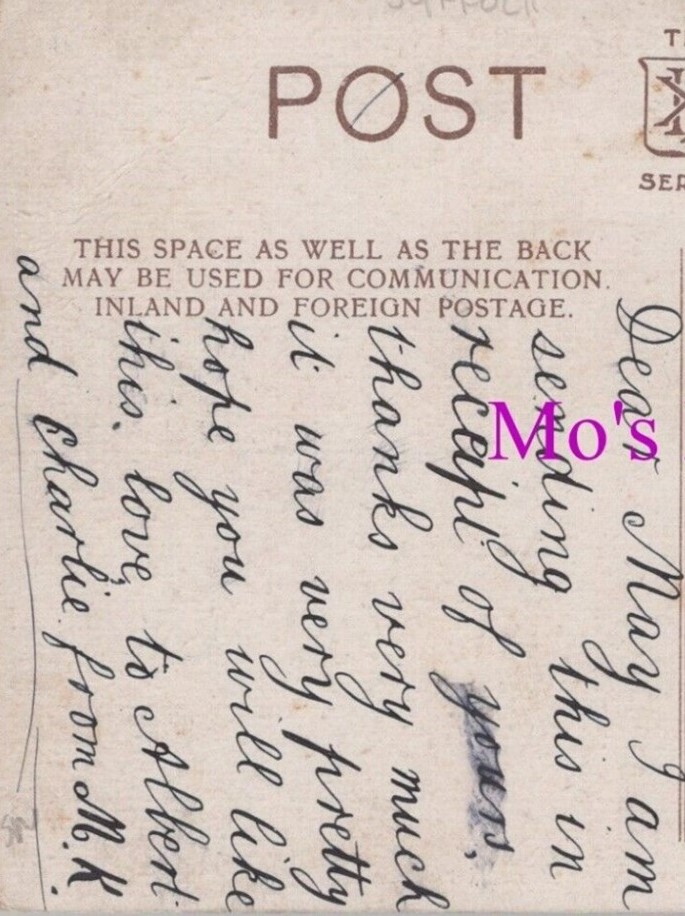 SUFFOLK
POST
SER
THIS SPACE AS WELL AS THE BACK
MAY BE USED FOR COMMUNICATION.
INLAND AND FOREIGN POSTAGE.
Dear May I am
sending this in
receipt of yours,
thanks very much
it was very pretty
hope you will like
this. love to Albert
and Charlie. from M.K.
Mo's